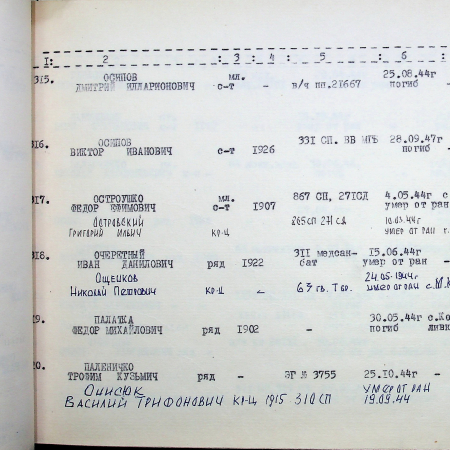 I: 2 : 3 : 4 : 5 : 6 :
315. ОСИПОВ мл. 25.08.44г
ДМИТРИЙ ИЛЛАРИОНОВИЧ с-т - в/ч пп.21667 погиб -
316. ОСИПОВ 331 СП. ВВ МГБ 28.09.47г
ВИКТОР ИВАНОВИЧ с-т 1926 погиб -
317. ОСТРОУШКО мл. 867 СП, 271СД 4.05.44г с
ФЕДОР ЕФИМОВИЧ с-т 1907 умер от ран
Островский 865 СП 271 СД 10.03.44г
Григорий Ильич кр-ц умер от ран г.
318. ОЧЕРЕТНЫЙ 311 медсан- 15.06.44г
ИВАН ДАНИЛОВИЧ ряд 1922 бат умер от ран -
Ощепков 24.05.1944г
Николай Петрович кр-ц - 63 гв. Т бр. умер от ран с.
19. ПАЛАТКА 30.05.44г с.Ко
ФЕДОР МИХАЙЛОВИЧ ряд 1902 - погиб ливк
20. ПАЛЕНИЧКО
ТРОФИМ КУЗЬМИЧ ряд - ЭГ № 3755 25.10.44г -
Онисюк умер от ран
Василий Трифонович кр-ц 1915 310 СП 19.09.44